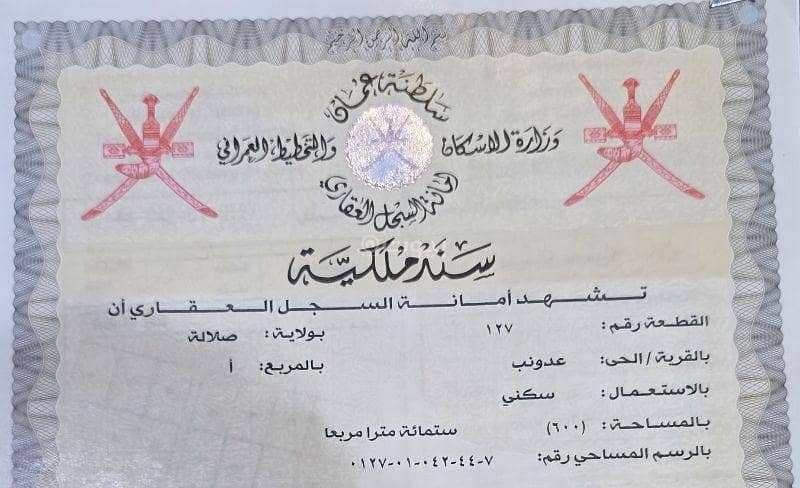 بسم الله الرحمن الرحيم
سلطنة عمان
وزارة الاسكان والتخطيط العمراني
امانة السجل العقاري
سند ملكية
تشهد أمانة السجل العقاري أن
القطعة رقم: ١٢٧ بولاية: صلالة
بالقرية / الحى: عدونب بالمربع: أ
بالاستعمال: سكني
بالمساحة: (٦٠٠) ستمائة مترا مربعا
بالرسم المساحي رقم: ٧-٤٤-٠٤٢-٠١-٠١٢٧